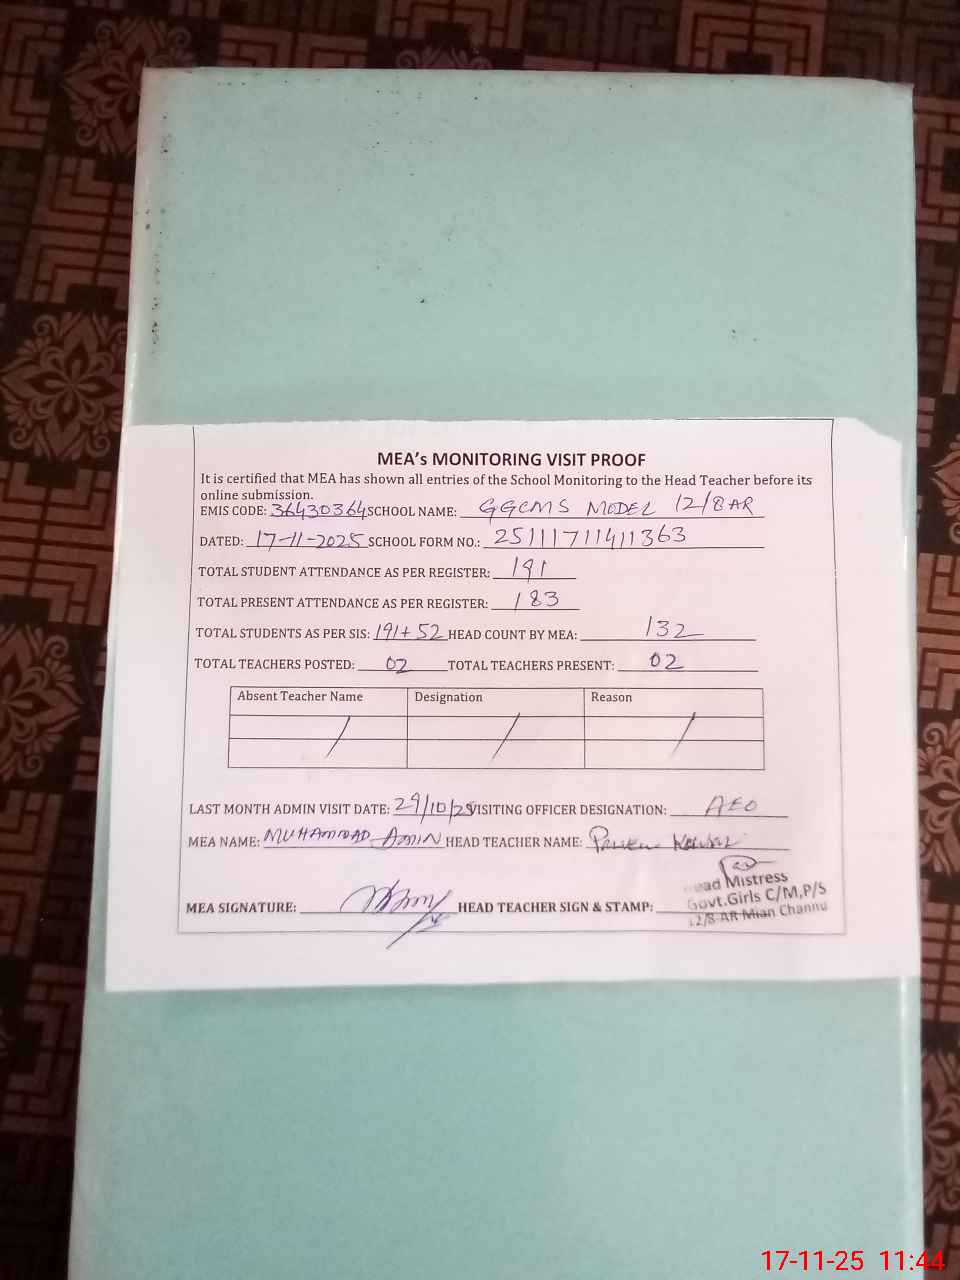 MEA's MONITORING VISIT PROOF
It is certified that MEA has shown all entries of the School Monitoring to the Head Teacher before its
online submission.
EMIS CODE: 36430364 SCHOOL NAME: GGCMS MODEL 12/8AR
DATED: 17-11-2025 SCHOOL FORM NO.: 25111711411363
TOTAL STUDENT ATTENDANCE AS PER REGISTER: 191
TOTAL PRESENT ATTENDANCE AS PER REGISTER: 183
TOTAL STUDENTS AS PER SIS: 191+52 HEAD COUNT BY MEA: 132
TOTAL TEACHERS POSTED: 02 TOTAL TEACHERS PRESENT: 02
Absent Teacher Name Designation Reason
LAST MONTH ADMIN VISIT DATE: 29/10/25 VISITING OFFICER DESIGNATION: AEO
MEA NAME: MUHAMMAD AMIN HEAD TEACHER NAME:
MEA SIGNATURE: HEAD TEACHER SIGN & STAMP:
ead Mistress
Govt.Girls C/M,P/S
12/8-AR Mian Channu
17-11-25 11:44